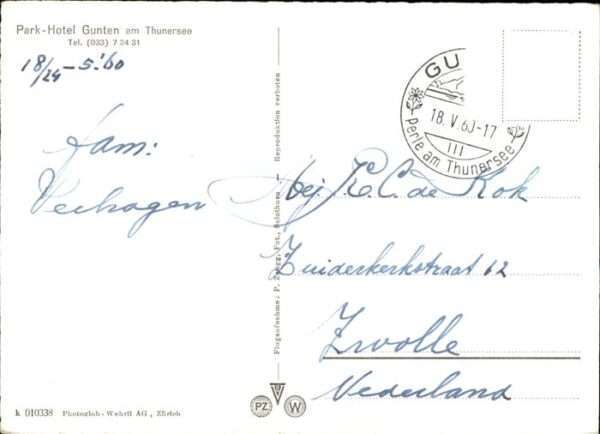 Park-Hotel Gunten am Thunersee
Tel. (033) 7 24 31
18/24 - 5.'60
Fam:
Verhagen
Reproduktion verboten
Flugaufnahme: P.
GU
18.V.60-17
III
Perle am Thunersee
C. de Kok
Zuiderkerkstraat 12
Zwolle
Nederland
k 010338 Photoglob-Wehrli AG, Zürich
PZ W